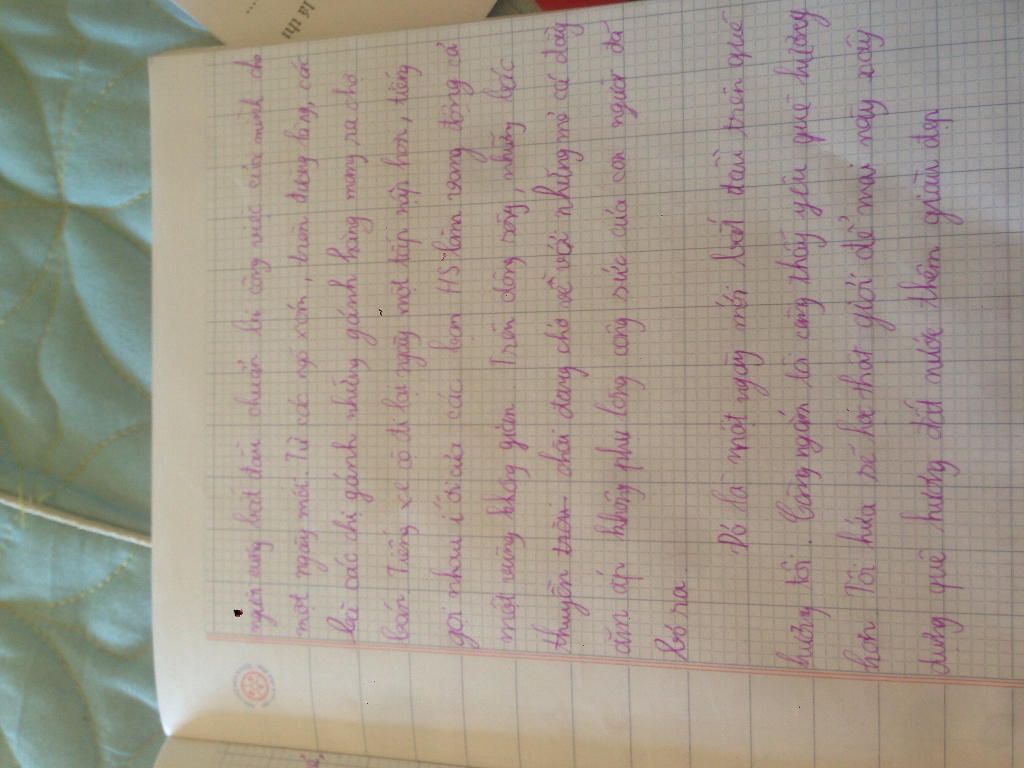 người cũng bắt đầu chuẩn bị công việc của mình cho
một ngày mới. Từ các ngõ xóm, trên đường làng, các
bà các chị gánh những gánh hàng mang ra chợ
bán. Tiếng xe cộ đi lại ngày một tấp nập hơn, tiếng
gọi nhau í ới của các bạn HS làm vang động cả
một vùng không gian. Trên dòng sông, những bác
thuyền trài chài đang chở về với những mẻ cá đầy
ăm ắp không phụ lòng công sức của con người đã
bỏ ra
Đó là một ngày mới bắt đầu trên quê
hương tôi. Càng ngắm tôi càng thấy yêu quê hương
hơn Tôi hứa sẽ học thật giỏi để mai này xây
dựng quê hương đất nước thêm giàu đẹp
lá th